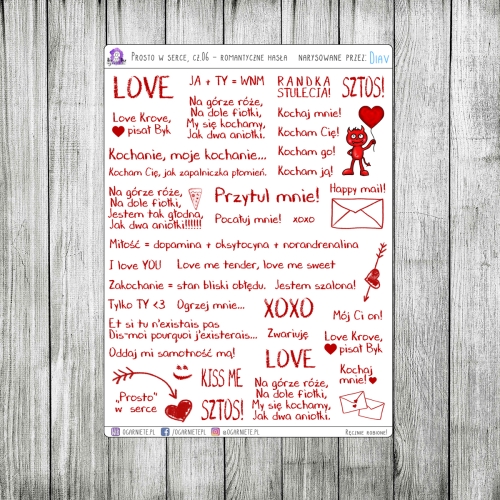 Prosto w serce, cz.06 - romantyczne hasła narysowane przez: Diav
LOVE
JA + TY = WNM
RANDKA
STULECIA!
SZTOS!
Na górze róże,
Na dole fiołki,
My się kochamy,
Jak dwa aniołki.
Love Krove,
pisał Byk
Kochaj mnie!
Kocham Cię!
Kocham go!
Kocham ją!
Kochanie, moje kochanie...
Kocham Cię, jak zapalniczka płomień.
Na górze róże,
Na dole fiołki,
Jestem tak głodna,
Jak dwa aniołki!!!!!!
Przytul mnie!
Happy mail!
Pocałuj mnie!
xoxo
Miłość = dopamina + oksytocyna + norandrenalina
I love YOU
Love me tender, love me sweet
Zakochanie = stan bliski obłędu.
Jestem szalona!
Tylko TY <3
Ogrzej mnie...
XOXO
Mój Ci on!
Et si tu n'existais pas
Dis-moi pourquoi j'existerais...
Zwariuję
Love Krove,
pisał Byk
Oddaj mi samotność mą!
LOVE
KISS ME
Kochaj
mnie!
"Prosto"
w serce
SZTOS!
Na górze róże,
Na dole fiołki,
My się kochamy,
Jak dwa aniołki.
OGARNIETE.PL
/OGARNIETEPL
@OGARNIETE.PL
Ręcznie robione!